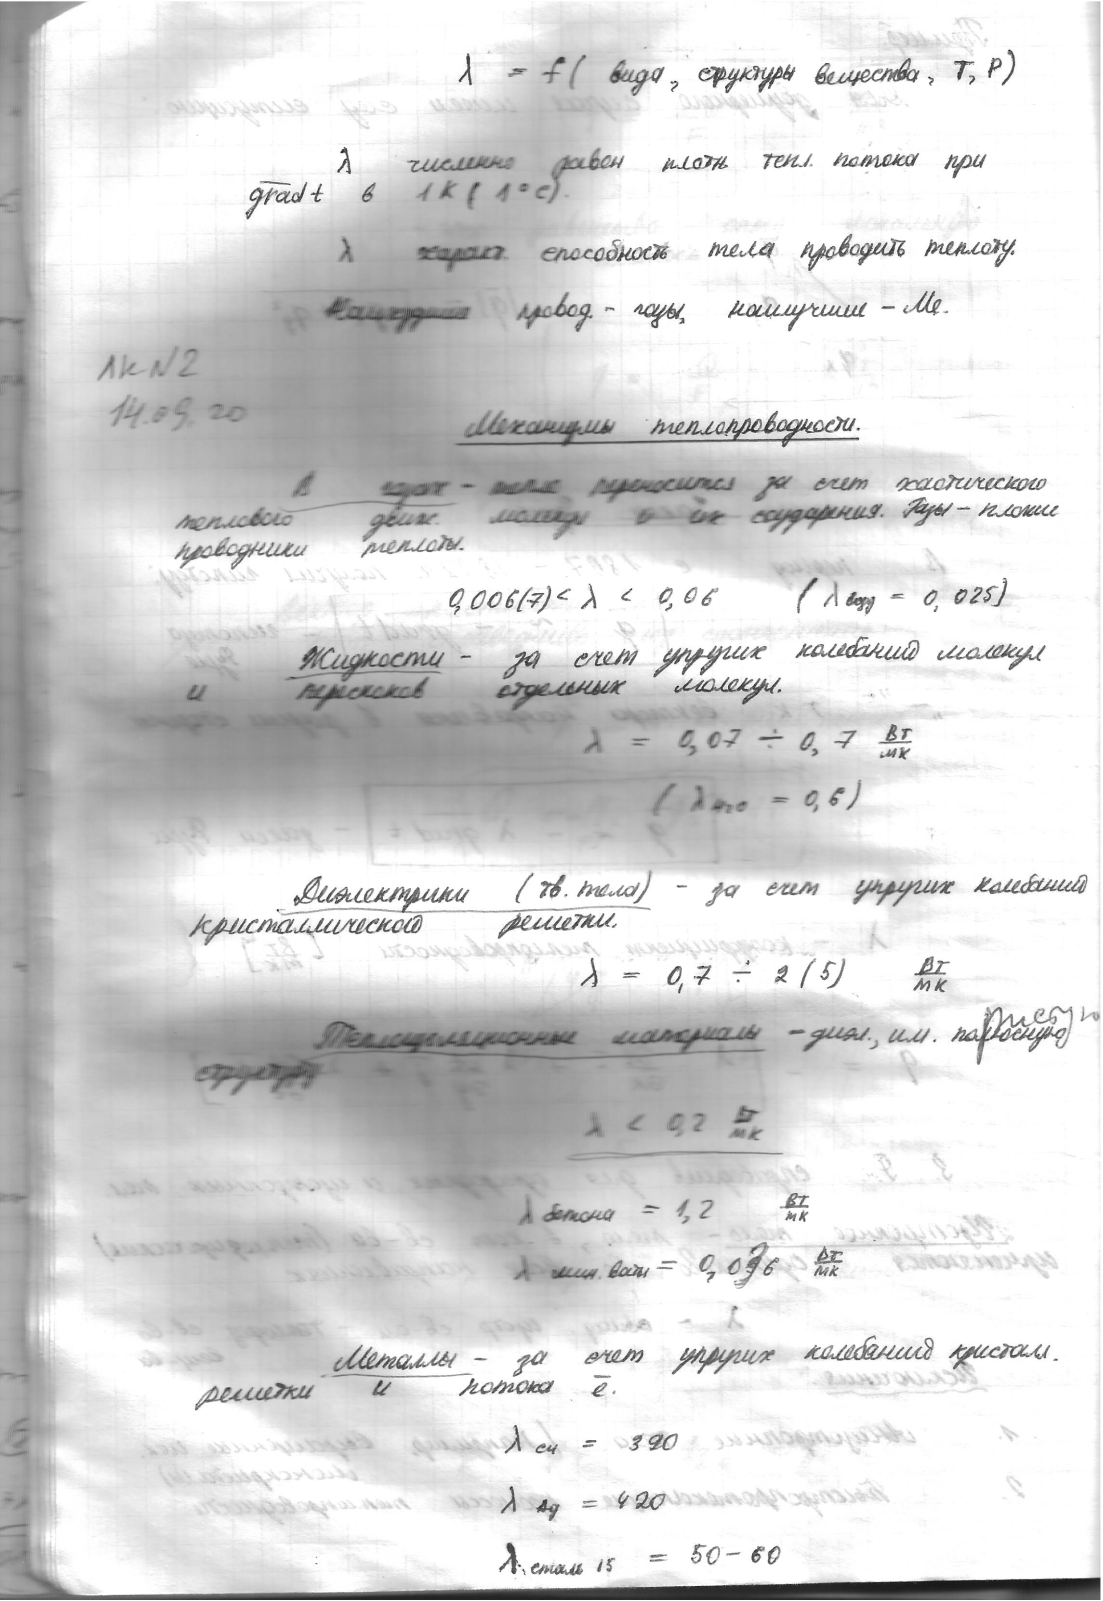 λ = f( вида, структуры вещества, T, P)
λ численно равен плотн тепл. потока при
grad t в 1K ( 1°C).
λ характ. способность тела проводить теплоту.
Наихудшие провод. - газы, наилучшие - Me.
ЛК N2
14.09.20
Механизмы теплопроводности.
В газах - тепло переносится за счет хаотического
теплового движ. молекул и их соударения. Газы - плохие
проводники теплоты.
0,006(7) < λ < 0,06 ( λ возд = 0, 025)
Жидкости - за счет упругих колебаний молекул
и перескоков отдельных молекул.
λ = 0,07 ÷ 0,7 Вт/мК
( λ H2O = 0,6)
Диэлектрики (тв. тела) - за счет упругих колебаний
кристаллического решетки.
λ = 0,7 ÷ 2 (5) Вт/мК
Теплоизоляционные материалы - диэл., им.
структуру
λ < 0,2 Вт/мК
λ бетона = 1,2 Вт/мК
λ мин. ваты = Вт/мК
Металлы - за счет упругих колебаний кристалл.
решетки и потока e̅.
λ cu = 390
λ Ag = 420
λ сталь 15 = 50-60